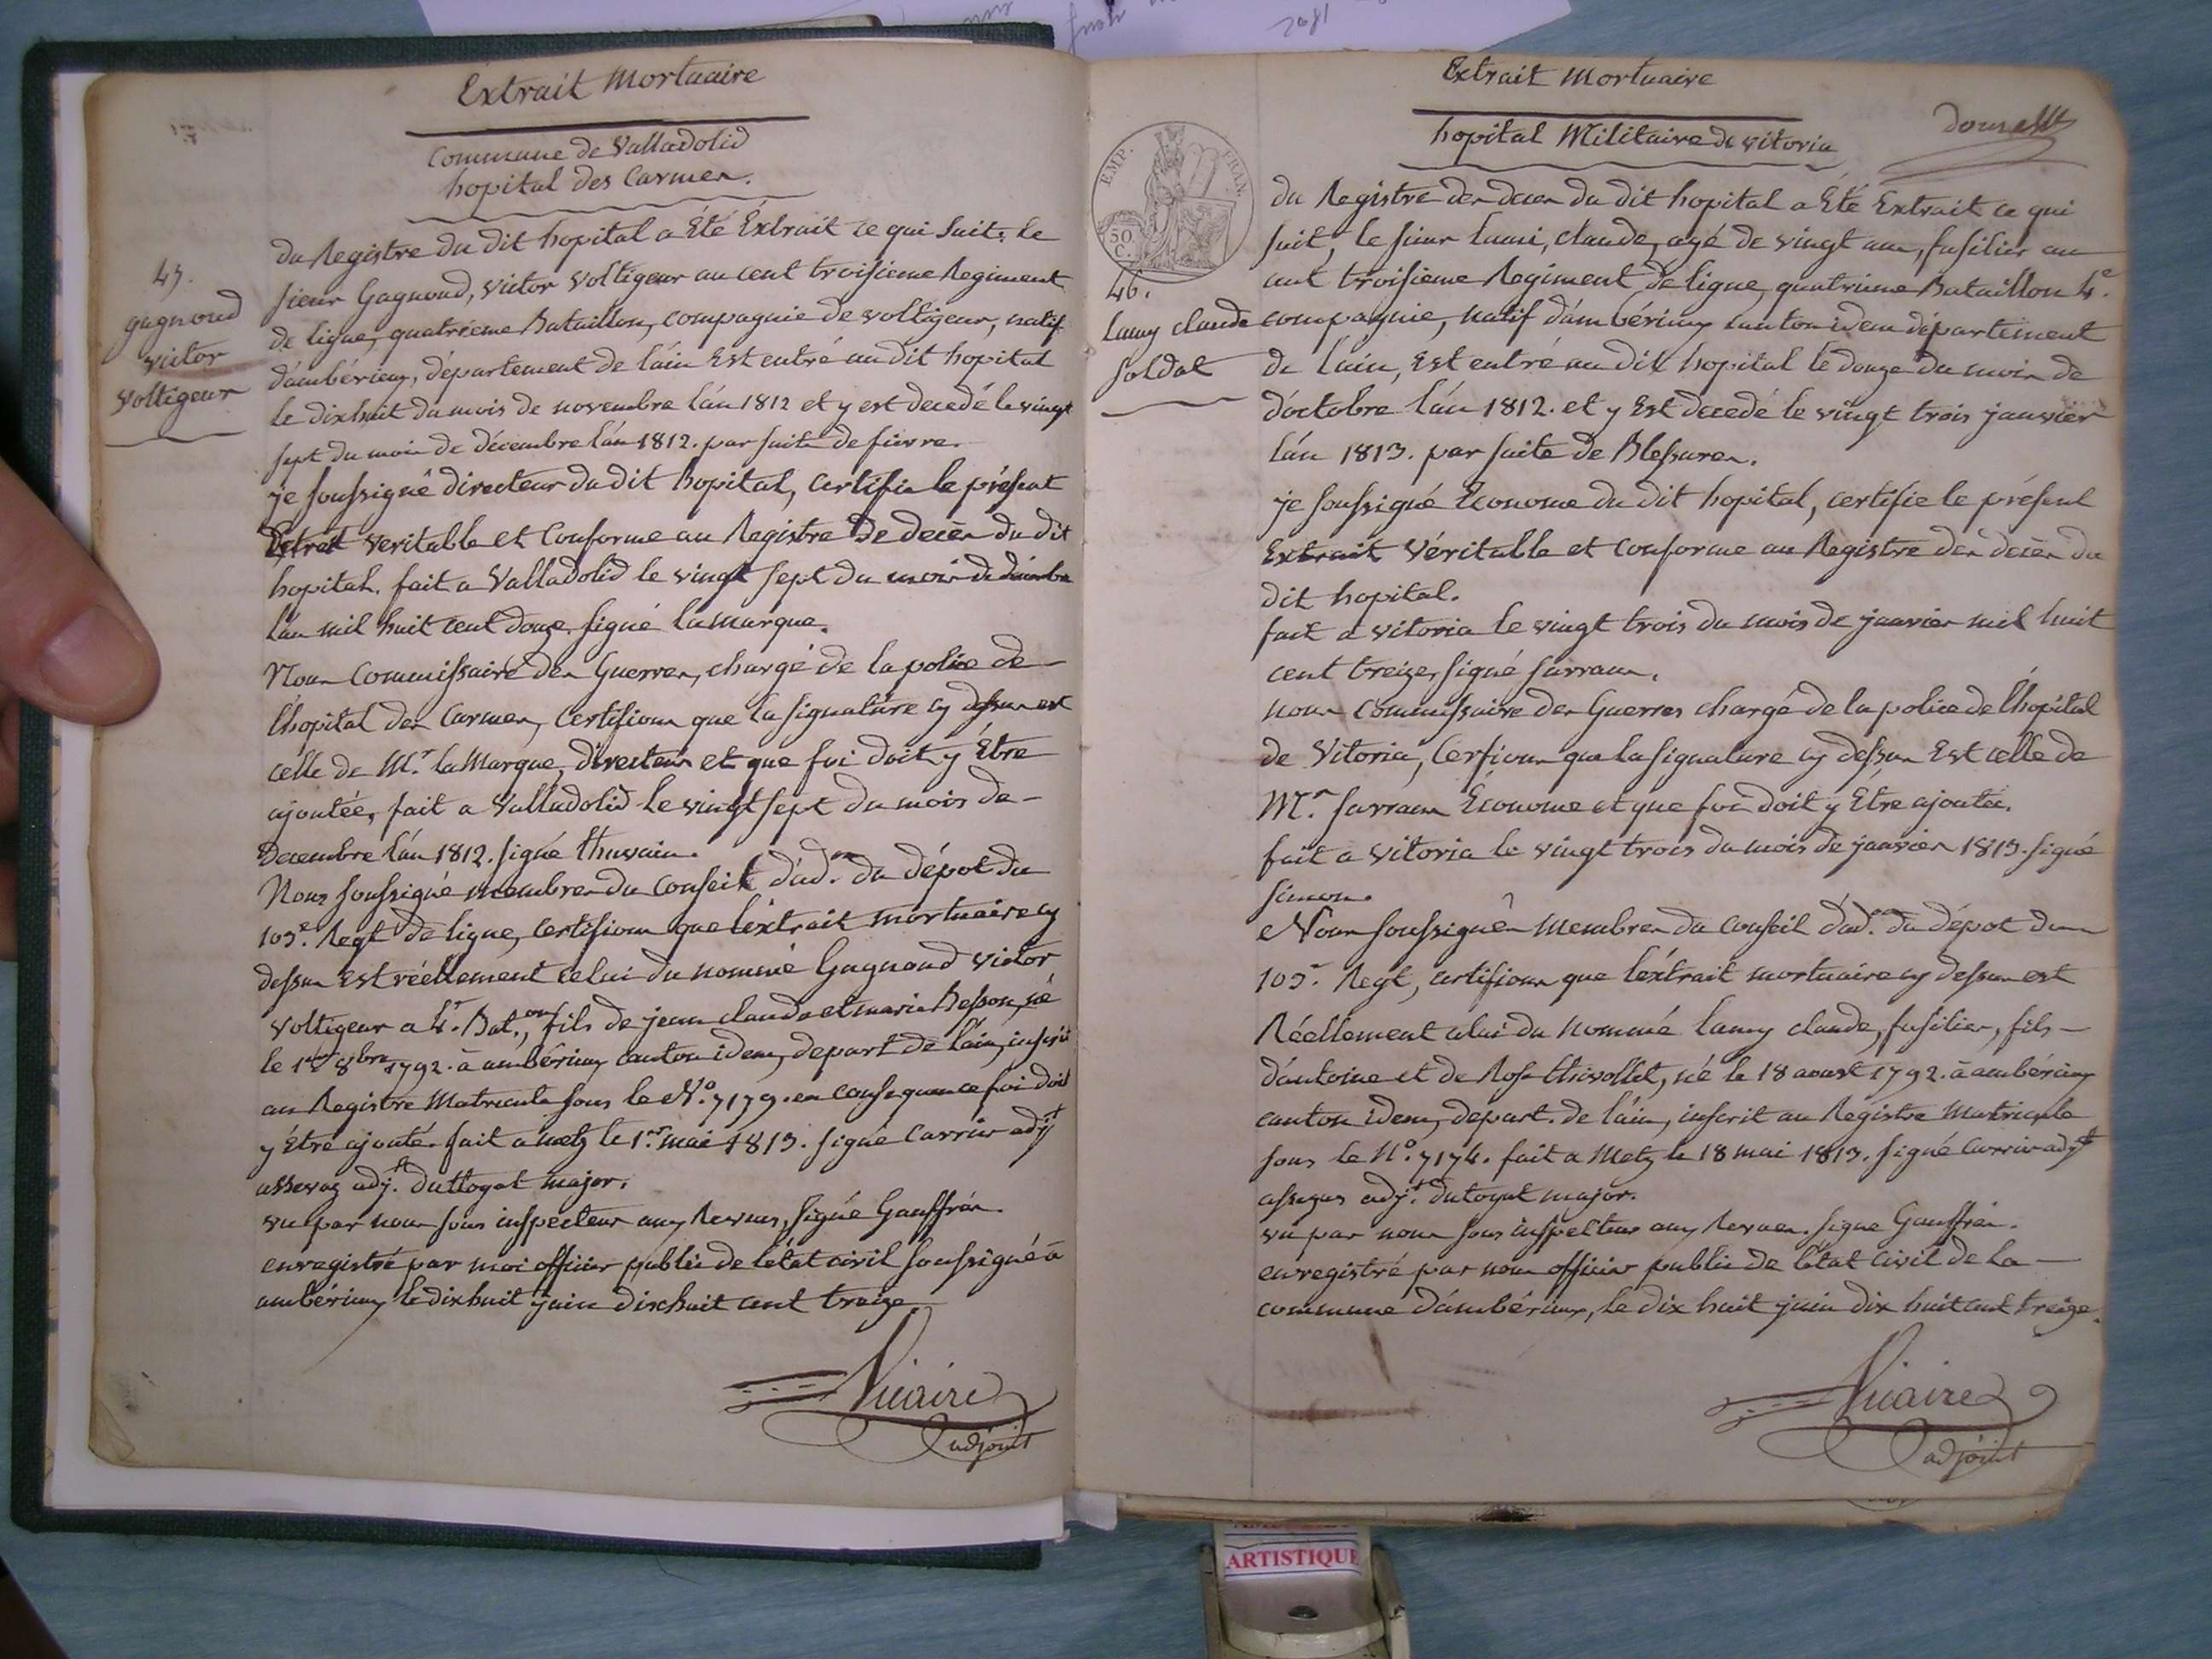 Extrait Mortuaire
Commune de Valladolid
hopital des Carmes.
45.
gagnoud
victor
voltigeur
du Registre du dit hopital a Été Éxtrait ce qui Suit: le
sieur Gagnoud, victor voltigeur au cent troisieme Regiment
de ligne, quatrième Bataillon, compagnie de voltigeur, natif
d'ambérieux, département de l'ain Est entré au dit hopital
le dixhuit du mois de novembre l'an 1812 et y est decedé le vingt
sept du mois de décembre l'an 1812. par suite de fievre.
je soussigné directeur du dit hopital, certifie le présent
Extrait veritable et conforme au Registre De decès du dit
hopital. fait a Valladolid le vingt sept du mois de décembre
l'an mil huit cent douze. signé lamarque.
Nous Commissaire des Guerres, chargé de la police de
l'hopital des Carmes, Certifions que la signature cy dessus est
celle de Mr. laMarque, directeur et que foi doit y Être
ajoutée, fait a Valladolid le vingt sept du mois de
Decembre l'an 1812. signé
Nous soussigné membres du conseil d'ad.on du dépot du
103e. Regt de ligne, certifions que l'éxtrait mortuaire cy
dessus Est réellement celui du nommé Gagnoud victor
voltigeur a 4e. Bat.on, fils de jean claude et marie Besson, né
le 1er 8bre 1792. à ambérieux canton idem, depart de l'ain, inscrit
au Registre Matricule sous le No. 7179. en consequence foi doit
y Être ajouté. fait a metz le 1er. mai 1813. signé Carrier adjt
adjt. dutoyat major.
vu par nous sous inspecteur aux Revues, signé Gauffrén.
enregistré par moi officier public de l'état civil soussigné à
ambérieux le dixhuit juin dixhuit cent treize
Vicaire
adjoint
Extrait Mortuaire
hopital Militaire de vitoria
EMP. FRAN.
50
C.
46.
lamy claude
soldat
du Registre des deces du dit hopital a Été Extrait ce qui
suit, le sieur lami, claude, agé de vingt ans, fusilier au
cent troisieme Regiment de ligne, quatrieme Bataillon 4e.
compagnie, natif d'ambérieux canton idem département
de l'ain, Est entré au dit hopital le douze du mois de
d'octobre l'an 1812. et y Est decedé le vingt trois janvier
l'an 1813. par suite de Blessures.
je soussigné Econome du dit hopital, certifie le présent
Extrait véritable et conforme au Registre des decès du
dit hopital.
fait a vitoria le vingt trois du mois de janvier mil huit
cent treize, signé sarraux.
nous Commissaire des Guerres chargé de la police de l'hopital
de Vitoria, Cerfions que la signature cy dessus Est celle de
Mr. sarraux Économe et que foi doit y Être ajoutée.
fait a vitoria le vingt trois du mois de janvier 1813. signé
simon.
Nous soussignés Membres du Conseil d'ad.on du dépot du
103e. Regt, certifions que l'éxtrait mortuaire cy dessus est
Réellement celui du nommé lamy claude, fusilier, fils
d'antoine et de Rose thivollet, né le 18 aoust 1792. à ambérieux
canton idem, depart. de l'ain, inscrit au Registre Matricule
sous le No. 7174. fait a Metz le 18 mai 1813. signé Carrier adjt
adjt. dutoyat major.
vu par nous sous inspecteur aux Revues. signe Gauffrén.
enregistré par nous officier public de l'état civil de la
commune d'ambérieux, le dix huit juin dix huit cent treize.
Vicaire
adjoint
ARTISTIQUE